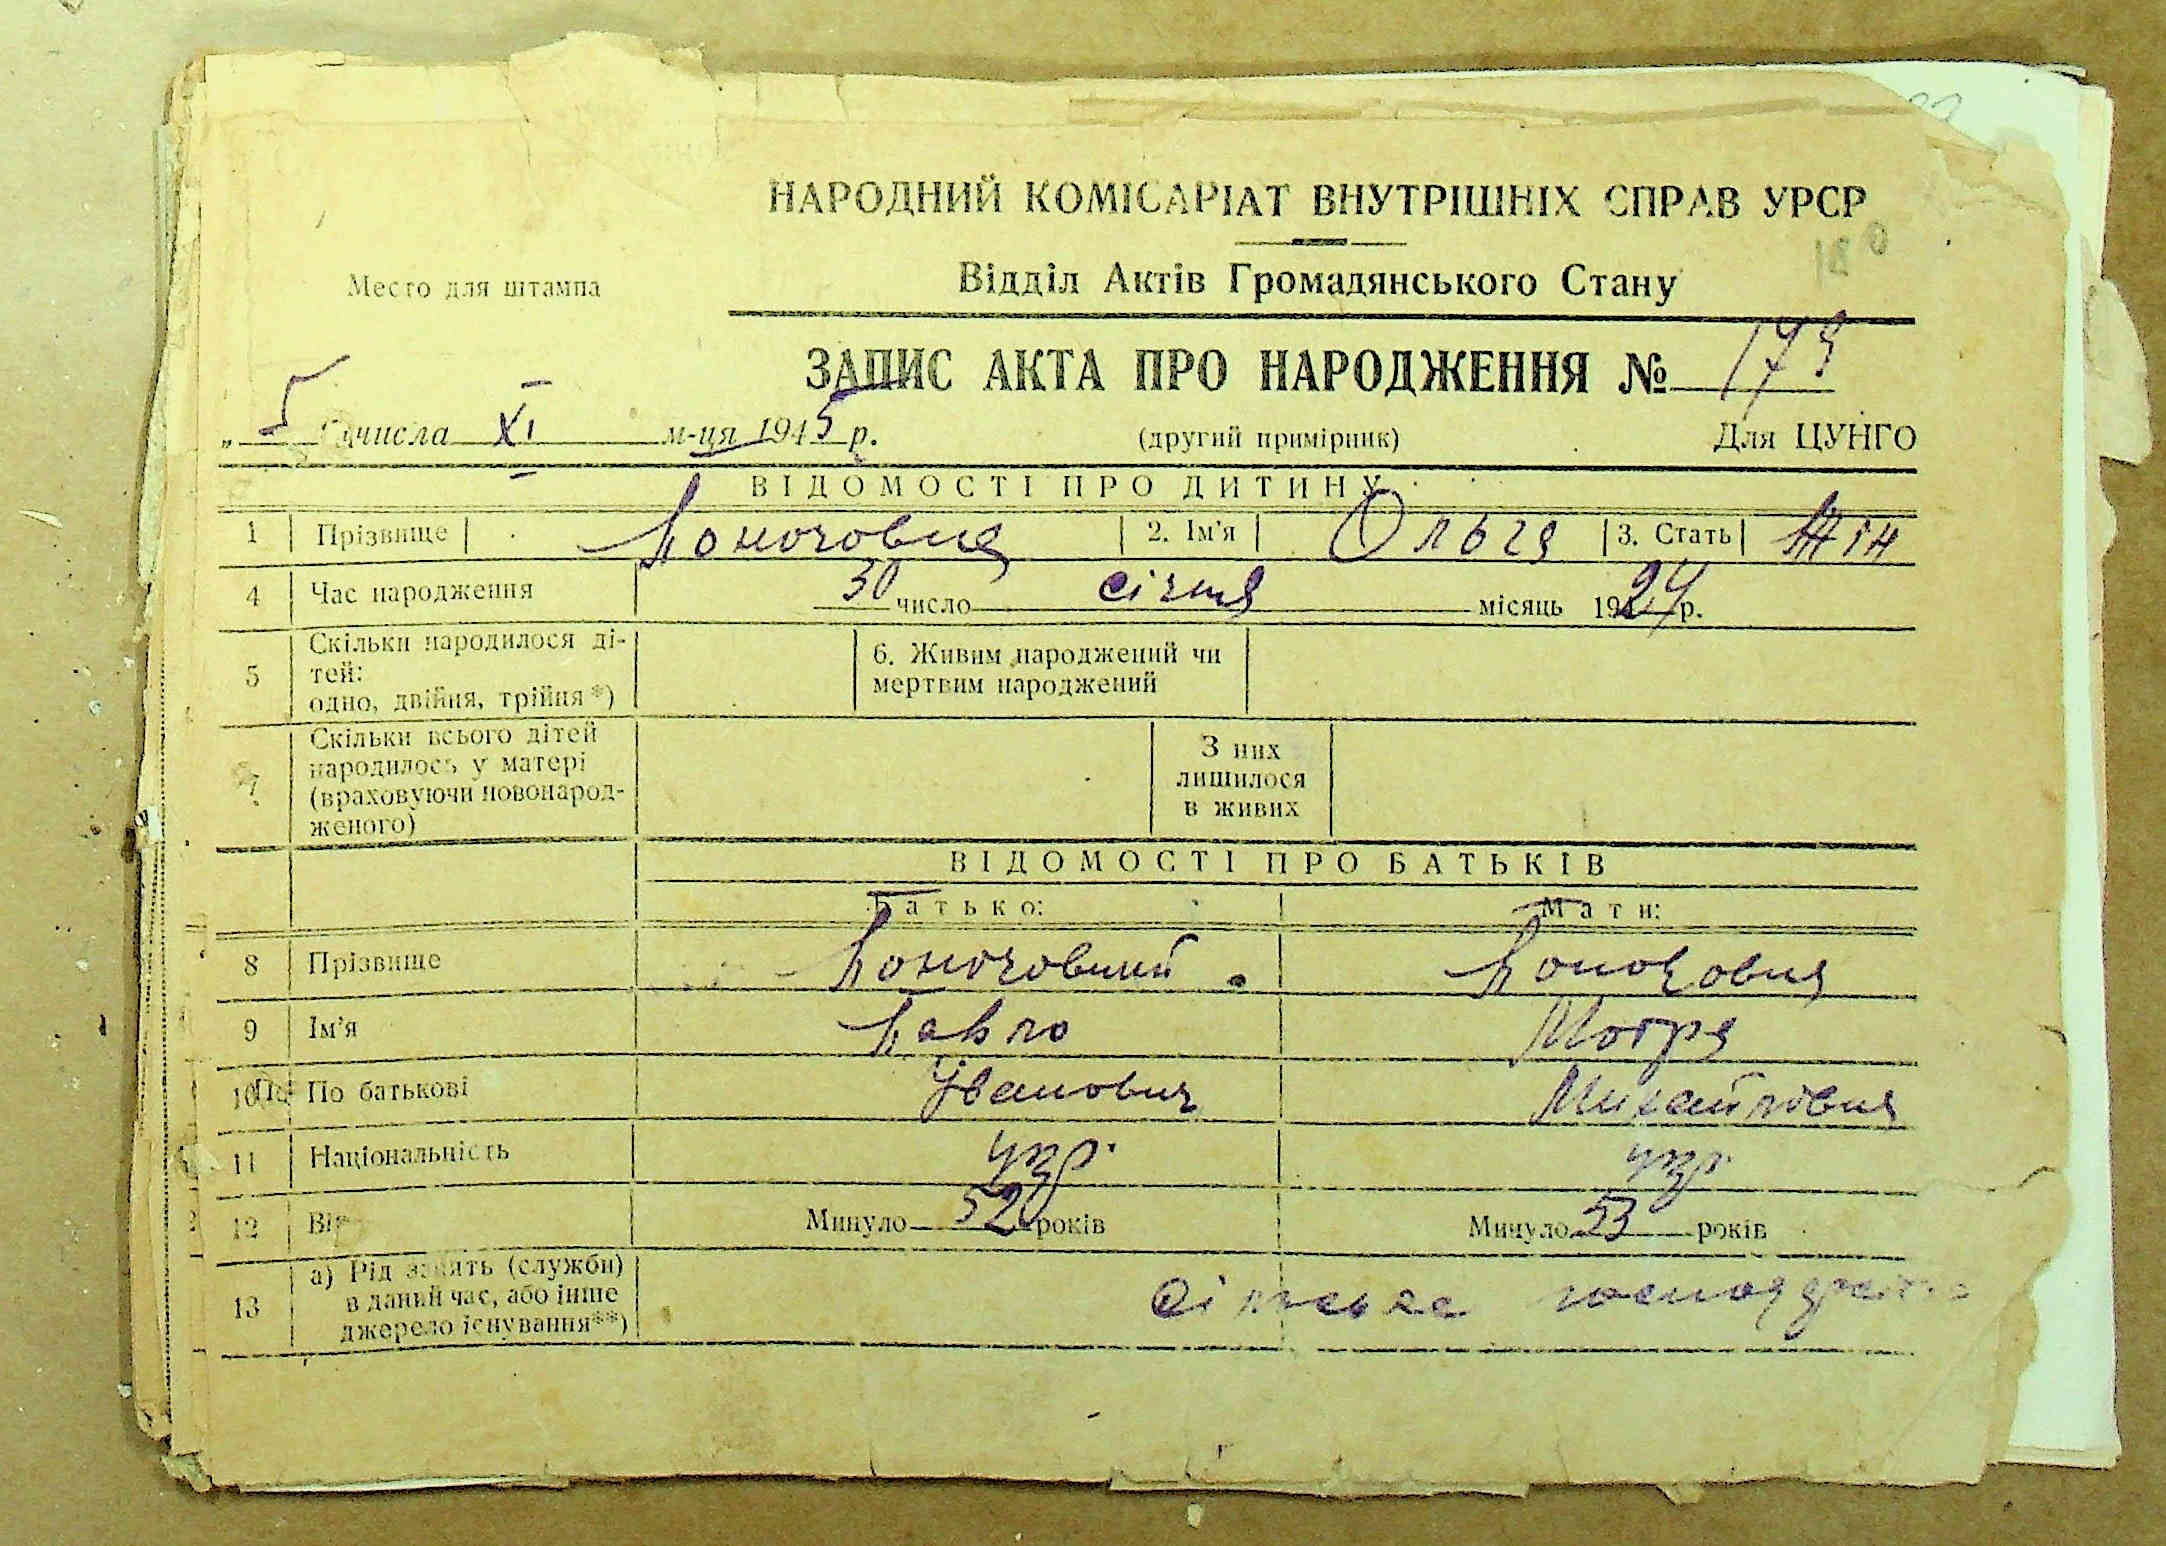 НАРОДНИЙ КОМІСАРІАТ ВНУТРІШНІХ СПРАВ УРСР
Відділ Актів Громадянського Стану
Место для штампа
ЗАПИС АКТА ПРО НАРОДЖЕННЯ №
„ 5 числа XI м-ця 1945 р. (другий примірник) Для ЦУНГО
ВІДОМОСТІ ПРО ДИТИНУ
1 Прізвище 2. Ім'я Ольга 3. Стать Жін
4 Час народження 30 число січня місяць 1924 р.
5 Скільки народилося ді-
тей:
одно, двійня, трійця*)
6. Живим народжений чи
мертвим народжений
7 Скільки всього дітей
народилось у матері
(враховуючи новонарод-
женого)
З них
лишилося
в живих
ВІДОМОСТІ ПРО БАТЬКІВ
Батько: Мати:
8 Прізвище
9 Ім'я Павло Мотря
10 По батькові Іванович Михайлівна
11 Національність укр. укр.
12 Вік Минуло 52 років Минуло 53 років
13 а) Рід занять (служби)
в даний час, або інше
джерело існування**)
Сільське господарство